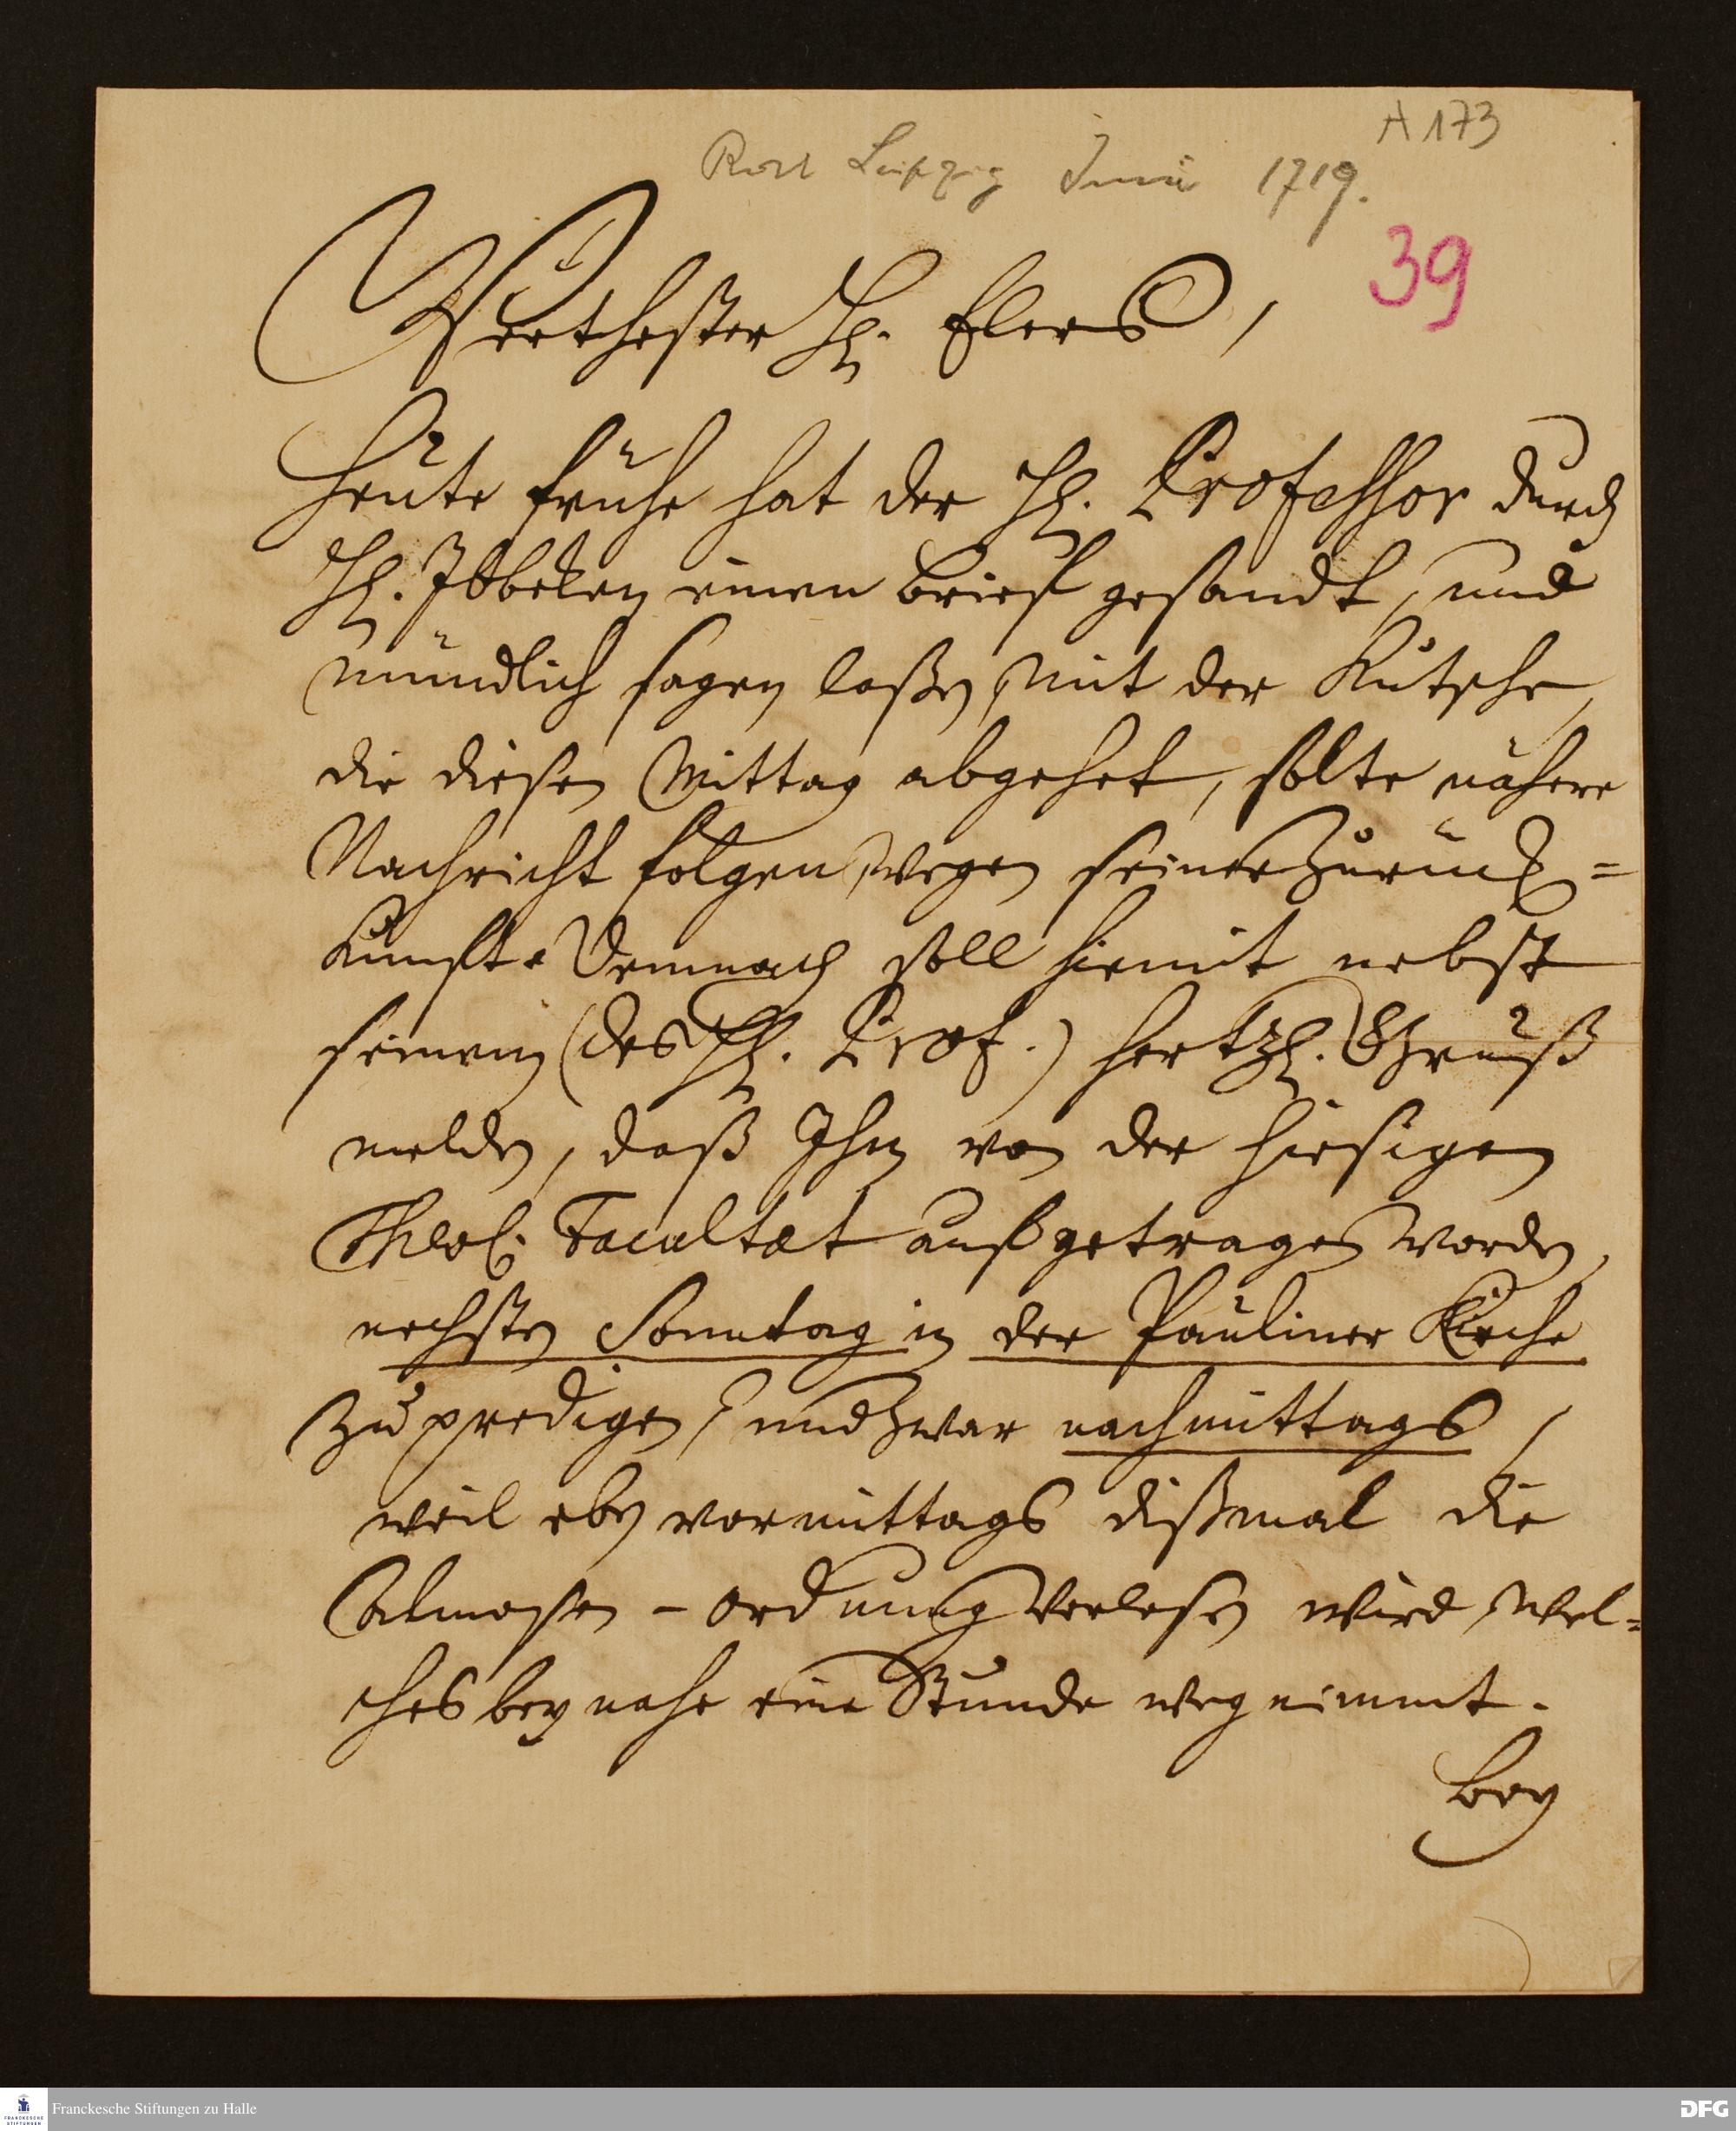 A 173
Leipzig Juni 1719.
39
Werthester H. Elers,
Heute frühe hat der H. Professor durch
H. Ibbeken einen brief gesandt, und
mündlich sagen laßen, mit der Kutsche,
die diesen Mittag abgehet, solte nähere
Nachricht folgen wegen seiner Zurück=
kunfft. Demnach soll hiemit nebst
seinem (des H. Prof.) hertzl. Gruß
melden, daß Ihm von der hiesigen
Theol. Facultæt aufgetragen worden,
nechsten Sonntag in der Pauliner Kirche
zu predigen, und zwar nachmittags,
weil eben vormittags dißmal die
Almosen-ordnung verlesen wird, wel=
ches bey nahe eine Stunde wegnimmt.
Bey
Franckesche Stiftungen zu Halle
FRANCKESCHE
STIFTUNGEN
DFG